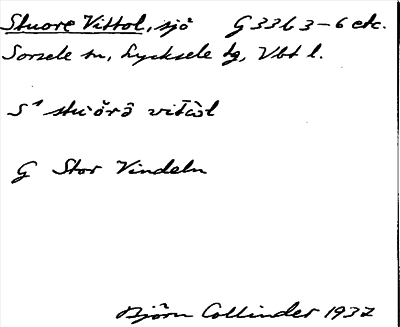 Stuore Vittol, sjö G 33b 3-6 etc.
Sorsele sn, Lycksele tg, Vbt l.
S¹ stuŏrō vitàl
G Stor Vindeln
Björn Collinder 1937